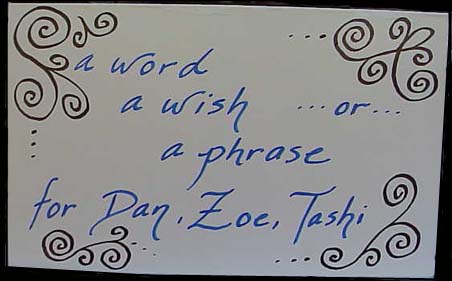 a word
a wish ...or...
a phrase
for Dan, Zoe, Tashi